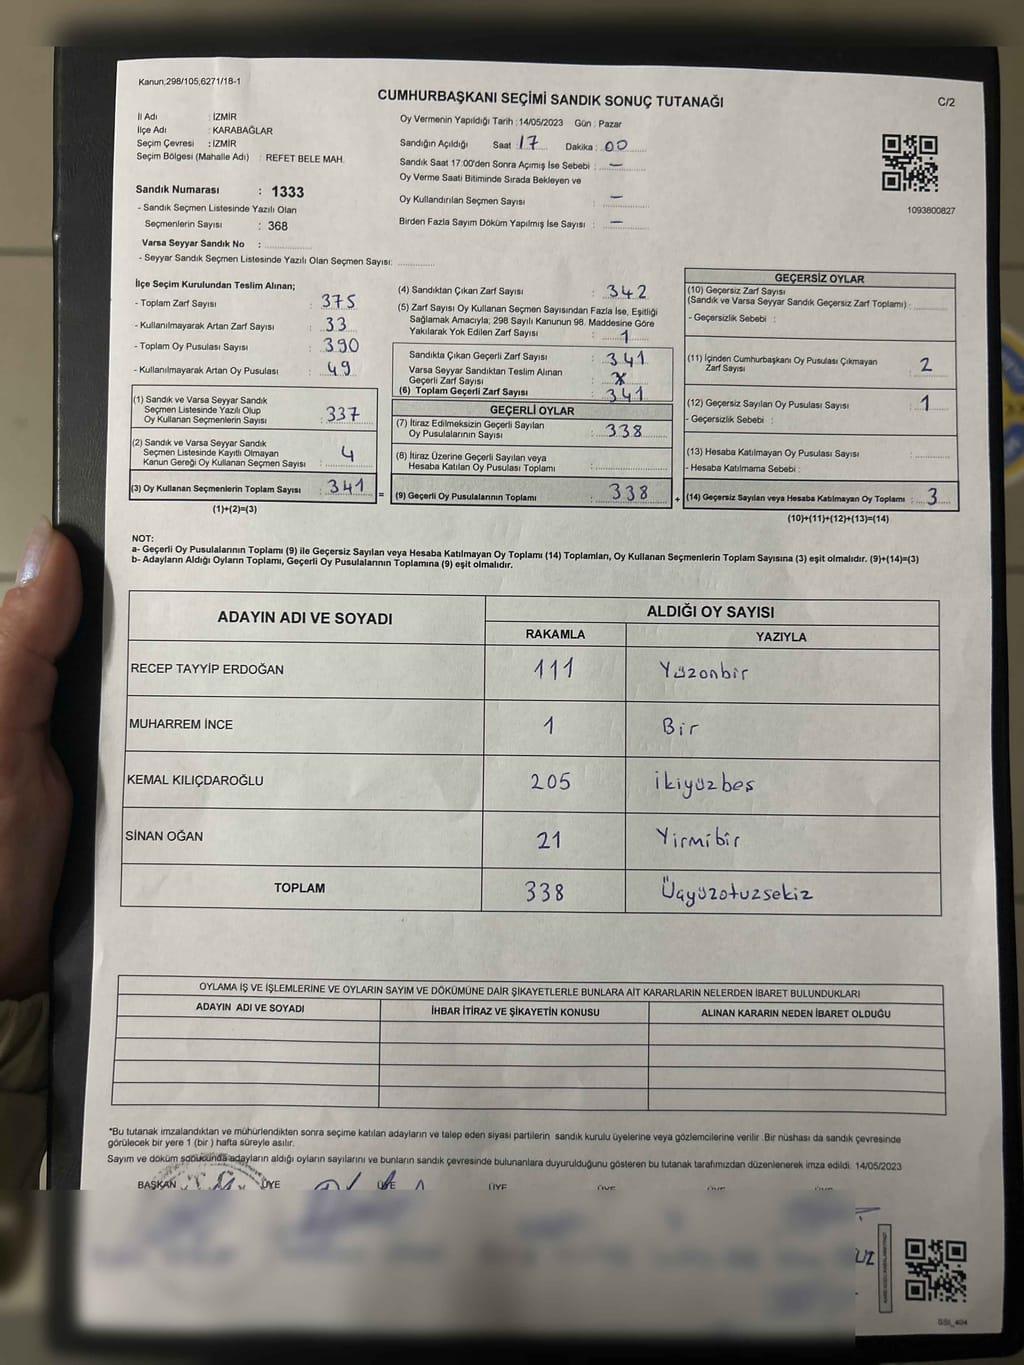 Kanun;298/105,6271/18-1
CUMHURBAŞKANI SEÇİMİ SANDIK SONUÇ TUTANAĞI
C/2
İl Adı : İZMİR
İlçe Adı : KARABAĞLAR
Seçim Çevresi : İZMİR
Seçim Bölgesi (Mahalle Adı) : REFET BELE MAH.
Sandık Numarası : 1333
- Sandık Seçmen Listesinde Yazılı Olan
Seçmenlerin Sayısı : 368
Varsa Seyyar Sandık No :
- Seyyar Sandık Seçmen Listesinde Yazılı Olan Seçmen Sayısı:
Oy Vermenin Yapıldığı Tarih : 14/05/2023 Gün : Pazar
Sandığın Açıldığı Saat : 17 Dakika : 00
Sandık Saat 17:00'den Sonra Açımış İse Sebebi : —
Oy Verme Saati Bitiminde Sırada Bekleyen ve
Oy Kullandırılan Seçmen Sayısı : —
Birden Fazla Sayım Döküm Yapılmış İse Sayısı : —
1093800827
İlçe Seçim Kurulundan Teslim Alınan;
- Toplam Zarf Sayısı : 375
- Kullanılmayarak Artan Zarf Sayısı : 33
- Toplam Oy Pusulası Sayısı : 390
- Kullanılmayarak Artan Oy Pusulası : 49
(1) Sandık ve Varsa Seyyar Sandık
Seçmen Listesinde Yazılı Olup
Oy Kullanan Seçmenlerin Sayısı : 337
(2) Sandık ve Varsa Seyyar Sandık
Seçmen Listesinde Kayıtlı Olmayan
Kanun Gereği Oy Kullanan Seçmen Sayısı : 4
(3) Oy Kullanan Seçmenlerin Toplam Sayısı : 341
(1)+(2)=(3)
=
(4) Sandıktan Çıkan Zarf Sayısı : 342
(5) Zarf Sayısı Oy Kullanan Seçmen Sayısından Fazla İse, Eşitliği
Sağlamak Amacıyla; 298 Sayılı Kanunun 98. Maddesine Göre
Yakılarak Yok Edilen Zarf Sayısı : 1
Sandıkta Çıkan Geçerli Zarf Sayısı : 341
Varsa Seyyar Sandıktan Teslim Alınan
Geçerli Zarf Sayısı : X
(6) Toplam Geçerli Zarf Sayısı : 341
GEÇERLİ OYLAR
(7) İtiraz Edilmeksizin Geçerli Sayılan
Oy Pusulalarının Sayısı : 338
(8) İtiraz Üzerine Geçerli Sayılan veya
Hesaba Katılan Oy Pusulası Toplamı :
(9) Geçerli Oy Pusulalarının Toplamı : 338
+
GEÇERSİZ OYLAR
(10) Geçersiz Zarf Sayısı
(Sandık ve Varsa Seyyar Sandık Geçersiz Zarf Toplamı) :
- Geçersizlik Sebebi :
(11) İçinden Cumhurbaşkanı Oy Pusulası Çıkmayan
Zarf Sayısı : 2
(12) Geçersiz Sayılan Oy Pusulası Sayısı : 1
- Geçersizlik Sebebi :
(13) Hesaba Katılmayan Oy Pusulası Sayısı :
- Hesaba Katılmama Sebebi :
(14) Geçersiz Sayılan veya Hesaba Katılmayan Oy Toplamı : 3
(10)+(11)+(12)+(13)=(14)
NOT:
a- Geçerli Oy Pusulalarının Toplamı (9) ile Geçersiz Sayılan veya Hesaba Katılmayan Oy Toplamı (14) Toplamları, Oy Kullanan Seçmenlerin Toplam Sayısına (3) eşit olmalıdır. (9)+(14)=(3)
b- Adayların Aldığı Oyların Toplamı, Geçerli Oy Pusulalarının Toplamına (9) eşit olmalıdır.
ADAYIN ADI VE SOYADI
ALDIĞI OY SAYISI
RAKAMLA YAZIYLA
RECEP TAYYİP ERDOĞAN 111 Yüzonbir
MUHARREM İNCE 1 Bir
KEMAL KILIÇDAROĞLU 205 ikiyüzbeş
SİNAN OĞAN 21 Yirmibir
TOPLAM 338 Üçyüzotuzsekiz
OYLAMA İŞ VE İŞLEMLERİNE VE OYLARIN SAYIM VE DÖKÜMÜNE DAİR ŞİKAYETLERLE BUNLARA AİT KARARLARIN NELERDEN İBARET BULUNDUKLARI
ADAYIN ADI VE SOYADI İHBAR İTİRAZ VE ŞİKAYETİN KONUSU ALINAN KARARIN NEDEN İBARET OLDUĞU
*Bu tutanak imzalandıktan ve mühürlendikten sonra seçime katılan adayların ve talep eden siyasi partilerin sandık kurulu üyelerine veya gözlemcilerine verilir .Bir nüshası da sandık çevresinde
görülecek bir yere 1 (bir ) hafta süreyle asılır.
Sayım ve döküm sonucunda adayların aldığı oyların sayılarını ve bunların sandık çevresinde bulunanlara duyurulduğunu gösteren bu tutanak tarafımızdan düzenlenerek imza edildi. 14/05/2023
BAŞKAN ÜYE ÜYE ÜYE ÜYE ÜYE ÜYE